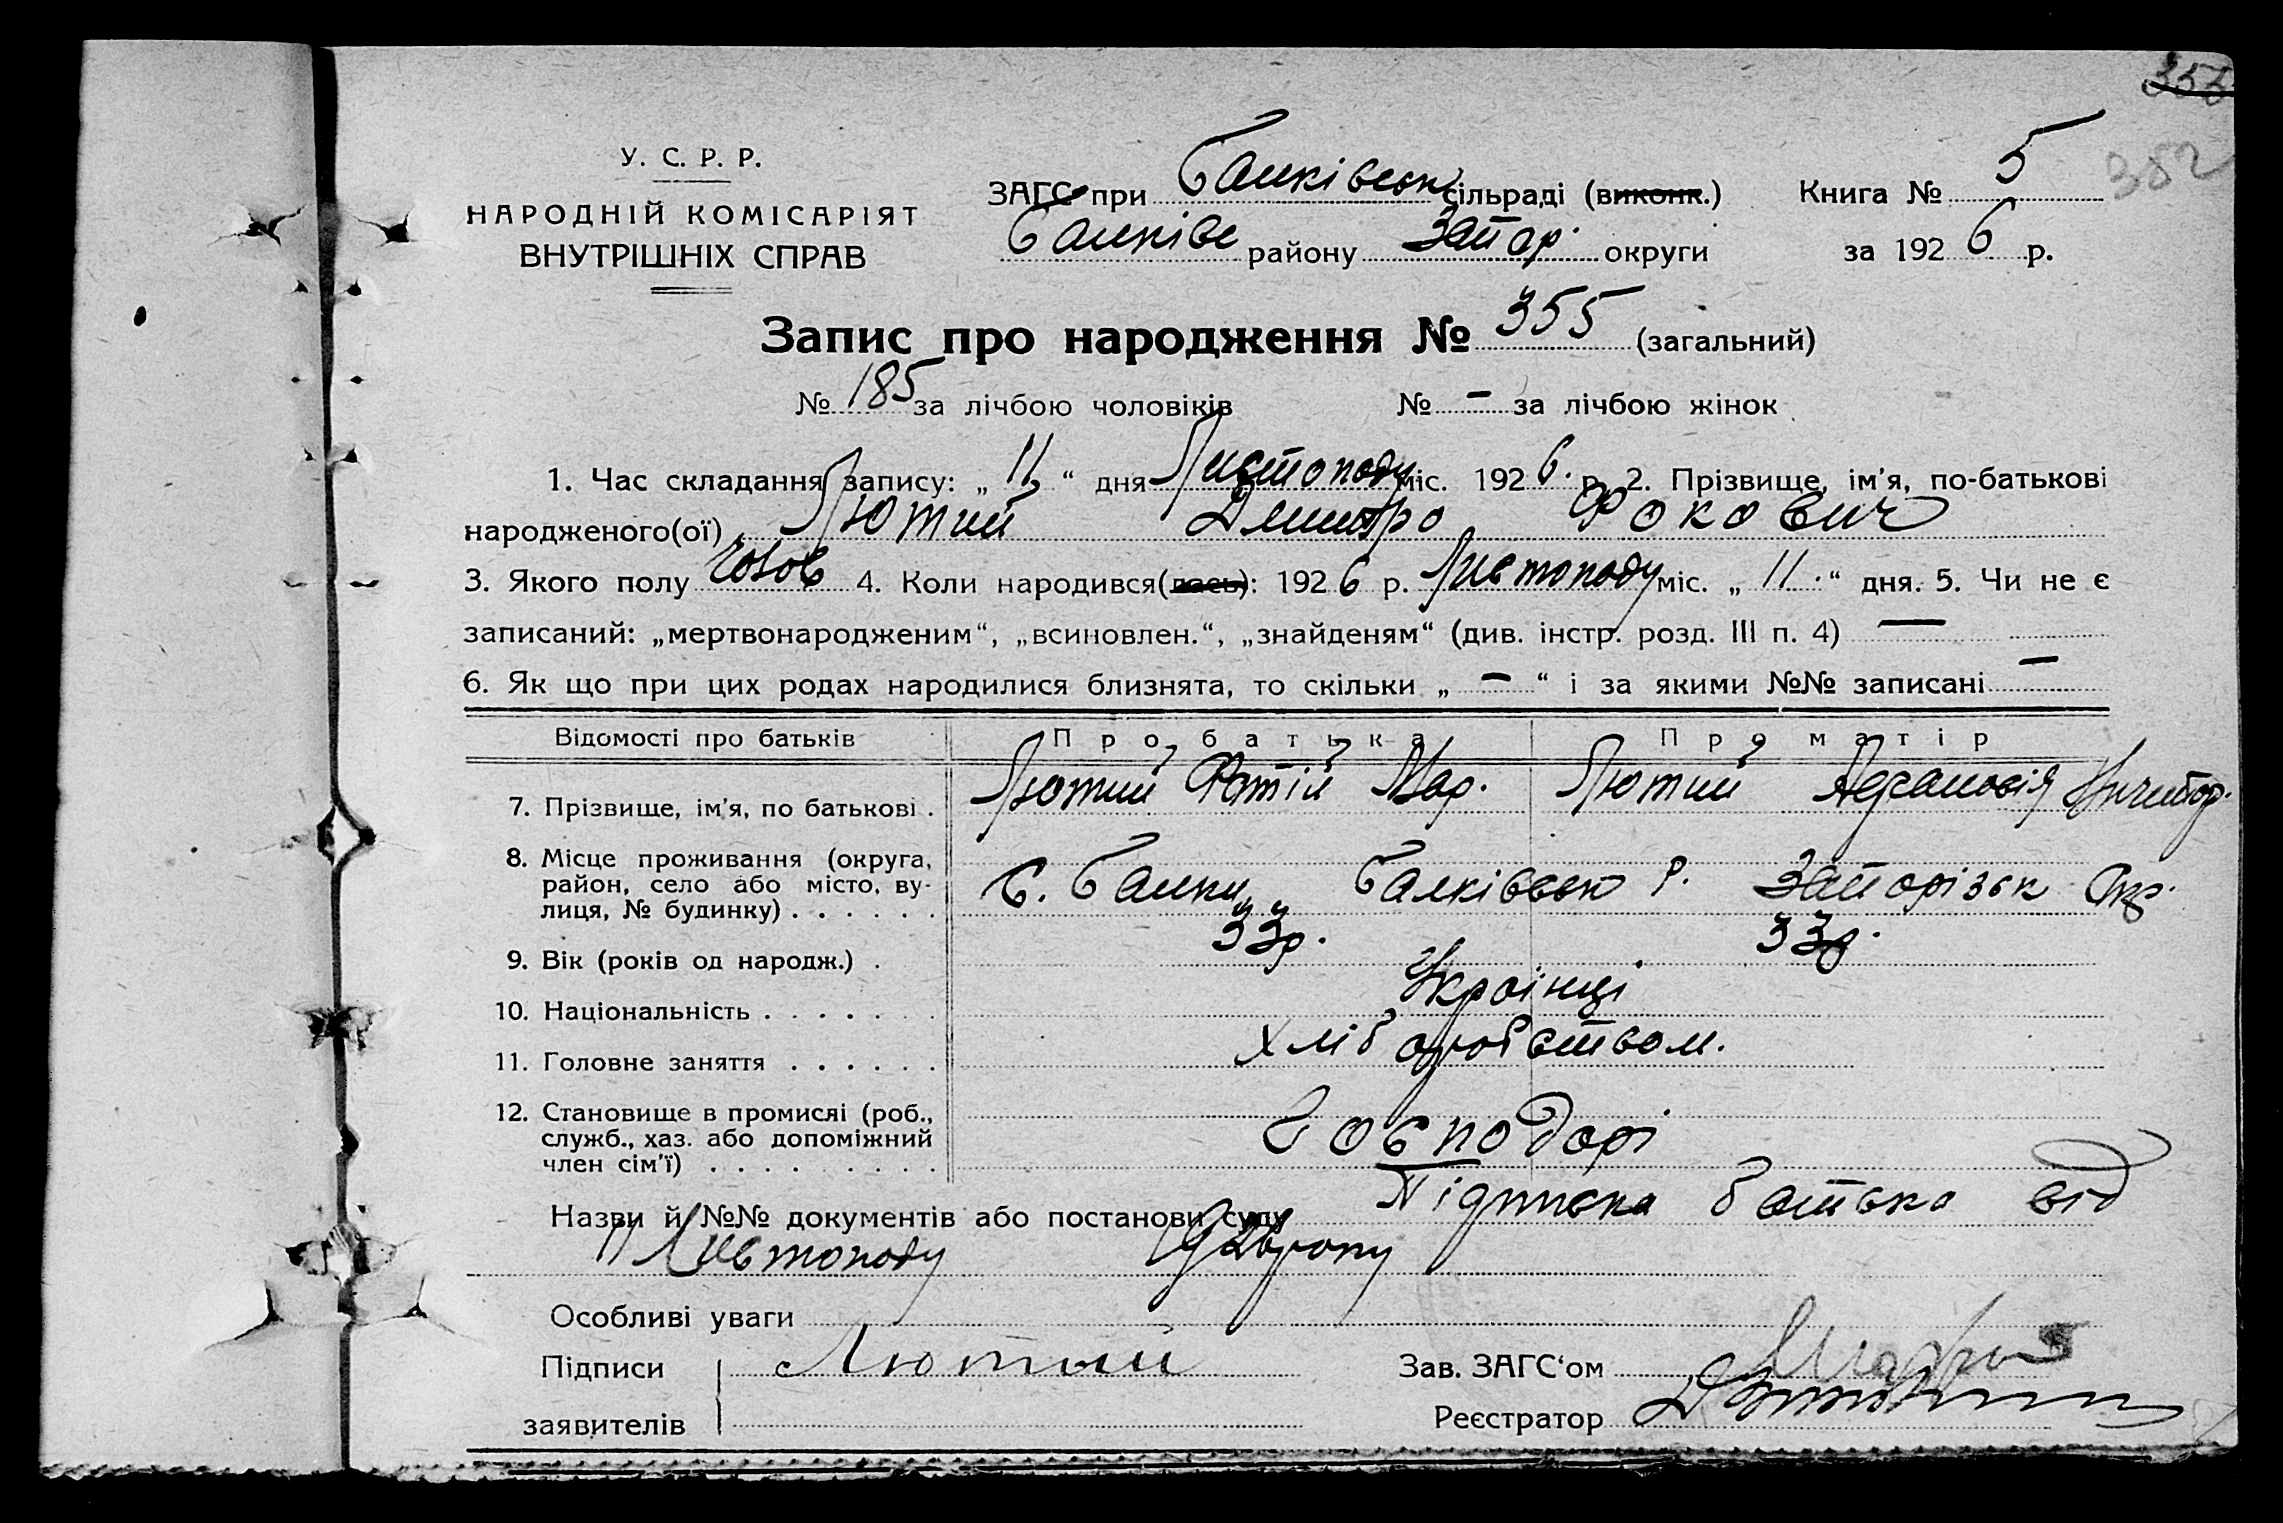 355
352
У. С. Р. Р.
НАРОДНІЙ КОМІСАРІЯТ
ВНУТРІШНІХ СПРАВ
ЗАГС при Балківськ сільраді (виконк.)
Балківс району Запор. округи
Книга № 5
за 1926 р.
Запис про народження № 355 (загальний)
№ 185 за лічбою чоловіків № – за лічбою жінок
1. Час складання запису: „ 11 “ дня Листопаду міс. 1926 р. 2. Прізвище, ім'я, по-батькові
народженого(ої) Лютий Дмитро Фокович
3. Якого полу Чолов 4. Коли народився(лась): 1926 р. Листопаду міс. „ 11 “ дня. 5. Чи не є
записаний: „мертвонародженим“, „всиновлен.“, „знайденям“ (див. інстр. розд. III п. 4) —
6. Як що при цих родах народилися близнята, то скільки „ – “ і за якими №№ записані –
Відомості про батьків Про батька Про матір
7. Прізвище, ім'я, по батькові . Лютий Фотій Мар. Лютий
8. Місце проживання (округа,
район, село або місто, ву-
лиця, № будинку) . . . . . . С. Балки, Балківськ Р. Запорізьк Окр.
9. Вік (років од народж.) . 33р. 33р.
10. Національність . . . . . . . Українці
11. Головне заняття . . . . . . Хліборобством.
12. Становище в промислі (роб.,
служб., хаз. або допоміжний
член сім'ї) . . . . . . . . . Господарі
Назви й №№ документів або постанови суду Підписка батька від
11 Листопаду 1926 року
Особливі уваги
Підписи Лютый
заявителів
Зав. ЗАГС‘ом
Реєстратор